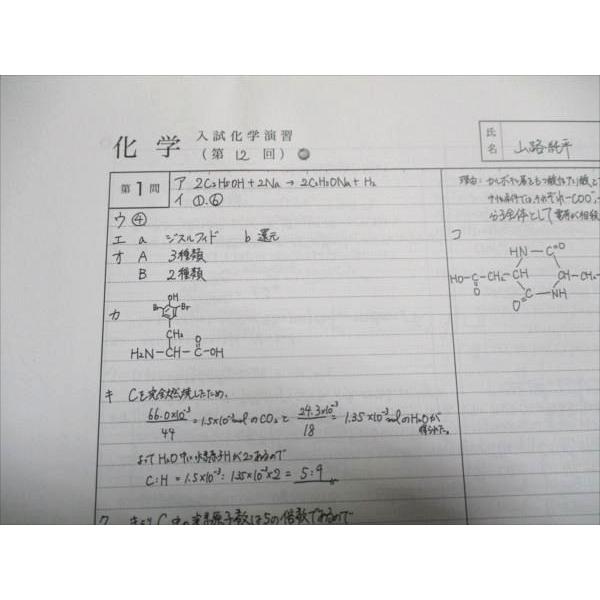 化学 入試化学演習
(第12回)
氏名 山路純平
第1問
ア 2C₂H₅OH+2Na→2C₂H₅ONa+H₂
イ ①,⑥
ウ ④
エ a ジスルフィド b 還元
オ A 3種類
B 2種類
カ
OH
Br Br
CH₂
H₂N-CH-C-OH
O
キ Cを完全燃焼したため,
66.0×10⁻³/44=1.5×10⁻³molのCO₂と 24.3×10⁻³/18=1.35×10⁻³molのH₂Oが
得られた。
よってH₂O中に水素原子Hが2つあるので
C:H=1.5×10⁻³:1.35×10⁻³×2=5:9
ク キより C中の炭素原子数は5の倍数であるので
理由:
-COO⁻
分子全体として
コ
HN-C=O
HO-C-CH₂-CH CH-CH₂-
O
O=C-NH